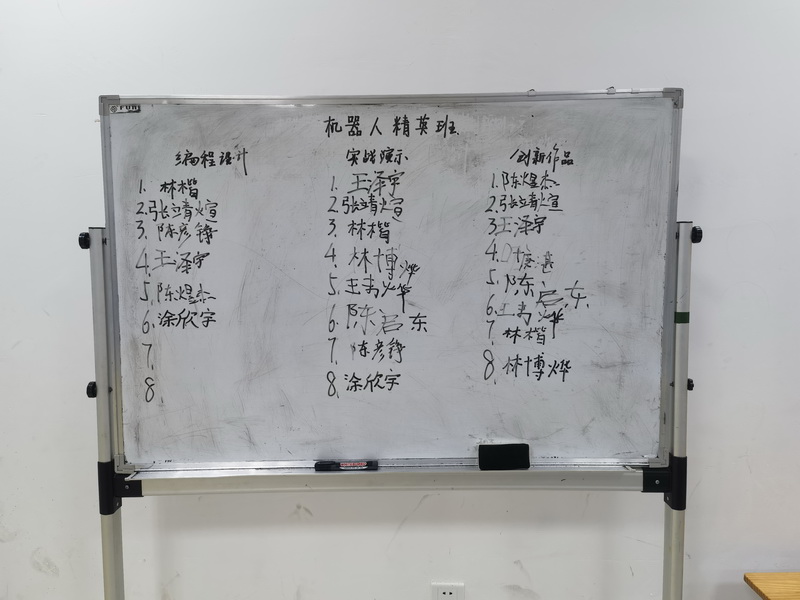 机器人精英班
编程设计
1. 林楷
2. 张靖煊
3. 陈彦铮
4. 王泽宇
5. 陈煜杰
6. 涂欣宇
7.
8.
实战演示
1. 王泽宇
2. 张靖煊
3. 林楷
4. 林博烨
5. 王为烨
6. 陈启东
7. 陈彦铮
8. 涂欣宇
创新作品
1. 陈煜杰
2. 张靖煊
3. 王泽宇
4.
5. 陈启东
6. 王为烨
7. 林楷
8. 林博烨